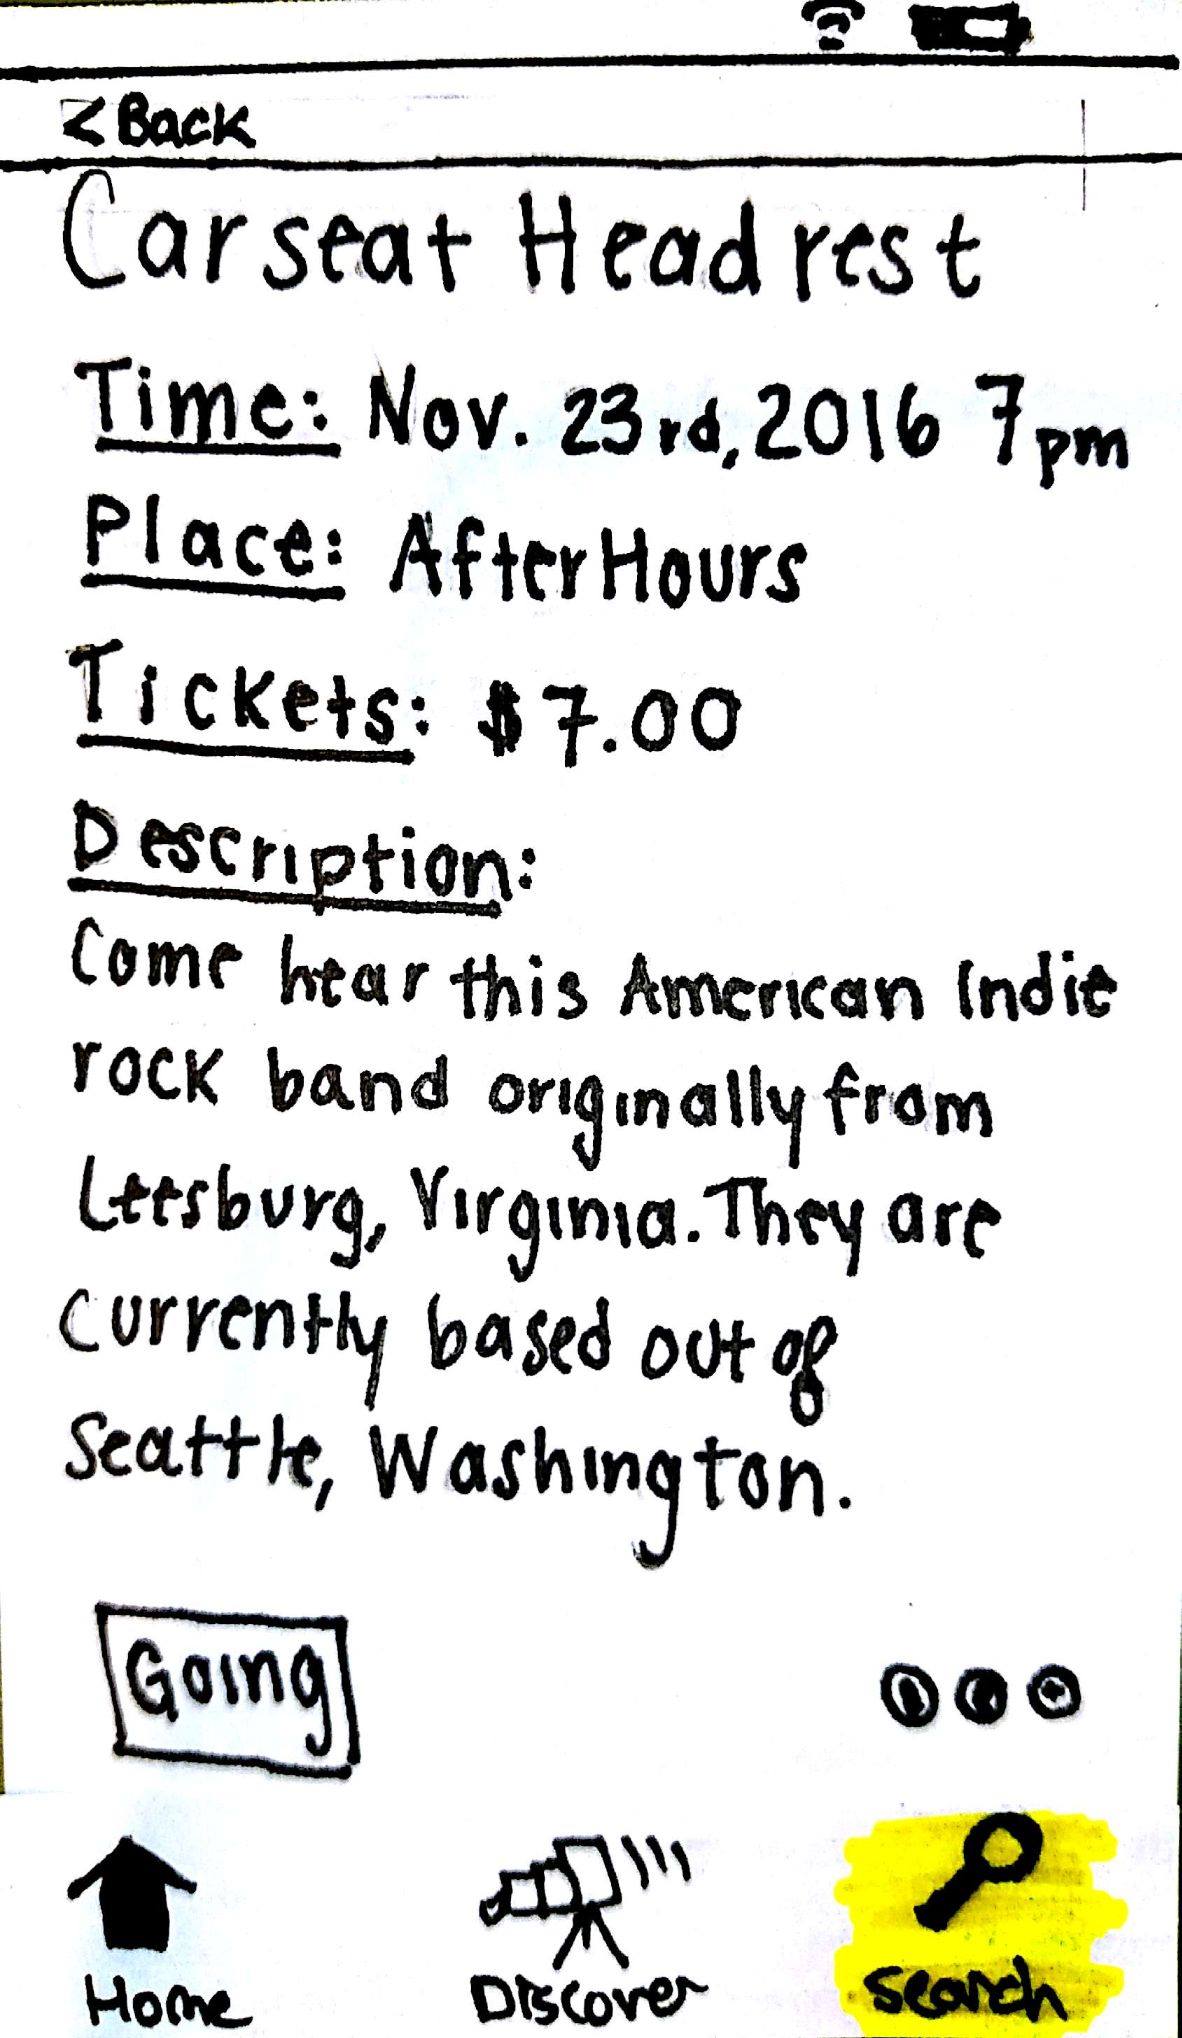 < Back
Car seat Headrest
Time: Nov. 23rd, 2016 7pm
Place: AfterHours
Tickets: $7.00
Description:
Come hear this American Indie
rock band originally from
Leesburg, Virginia. They are
currently based out of
Seattle, Washington.
Going
Home
Discover
Search